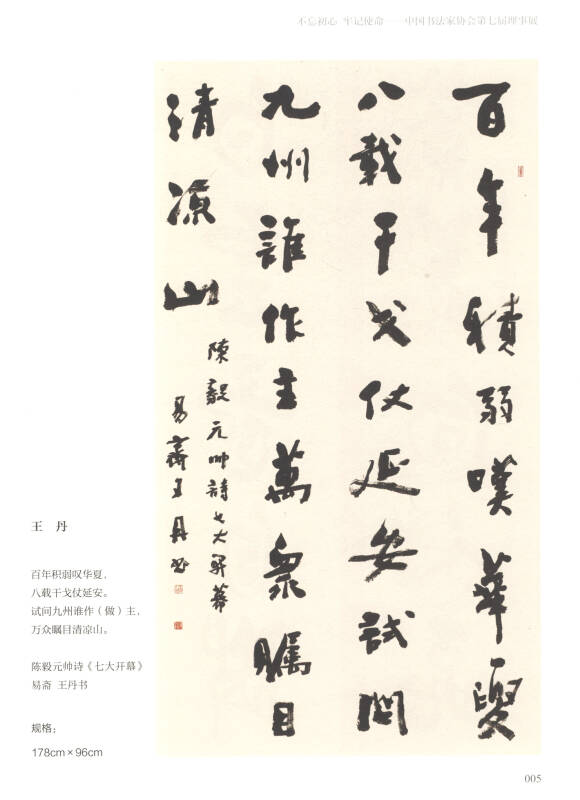 不忘初心 牢记使命——中国书法家协会第七届理事展
百年積弱嘆華夏
八載干戈仗延安試問
九州誰作主萬衆矚目
清涼山
陳毅元帅詩七大開幕
易齋王丹書
王 丹
百年积弱叹华夏，
八载干戈仗延安。
试问九州谁作（做）主，
万众瞩目清凉山。
陈毅元帅诗《七大开幕》
易斋 王丹书
规格：
178cm×96cm
005